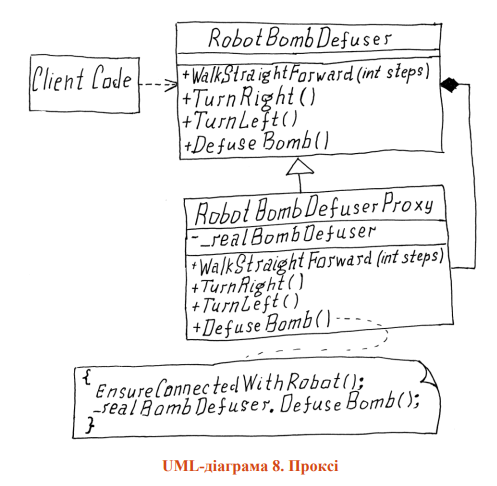 RobotBombDefuser
Client Code
+WalkStraightForward (int steps)
+TurnRight()
+TurnLeft()
+DefuseBomb()
RobotBombDefuserProxy
-_realBombDefuser
+WalkStraightForward (int steps)
+TurnRight()
+TurnLeft()
+DefuseBomb()
{
EnsureConnectedWithRobot();
_realBombDefuser.DefuseBomb();
}
UML-діаграма 8. Проксі